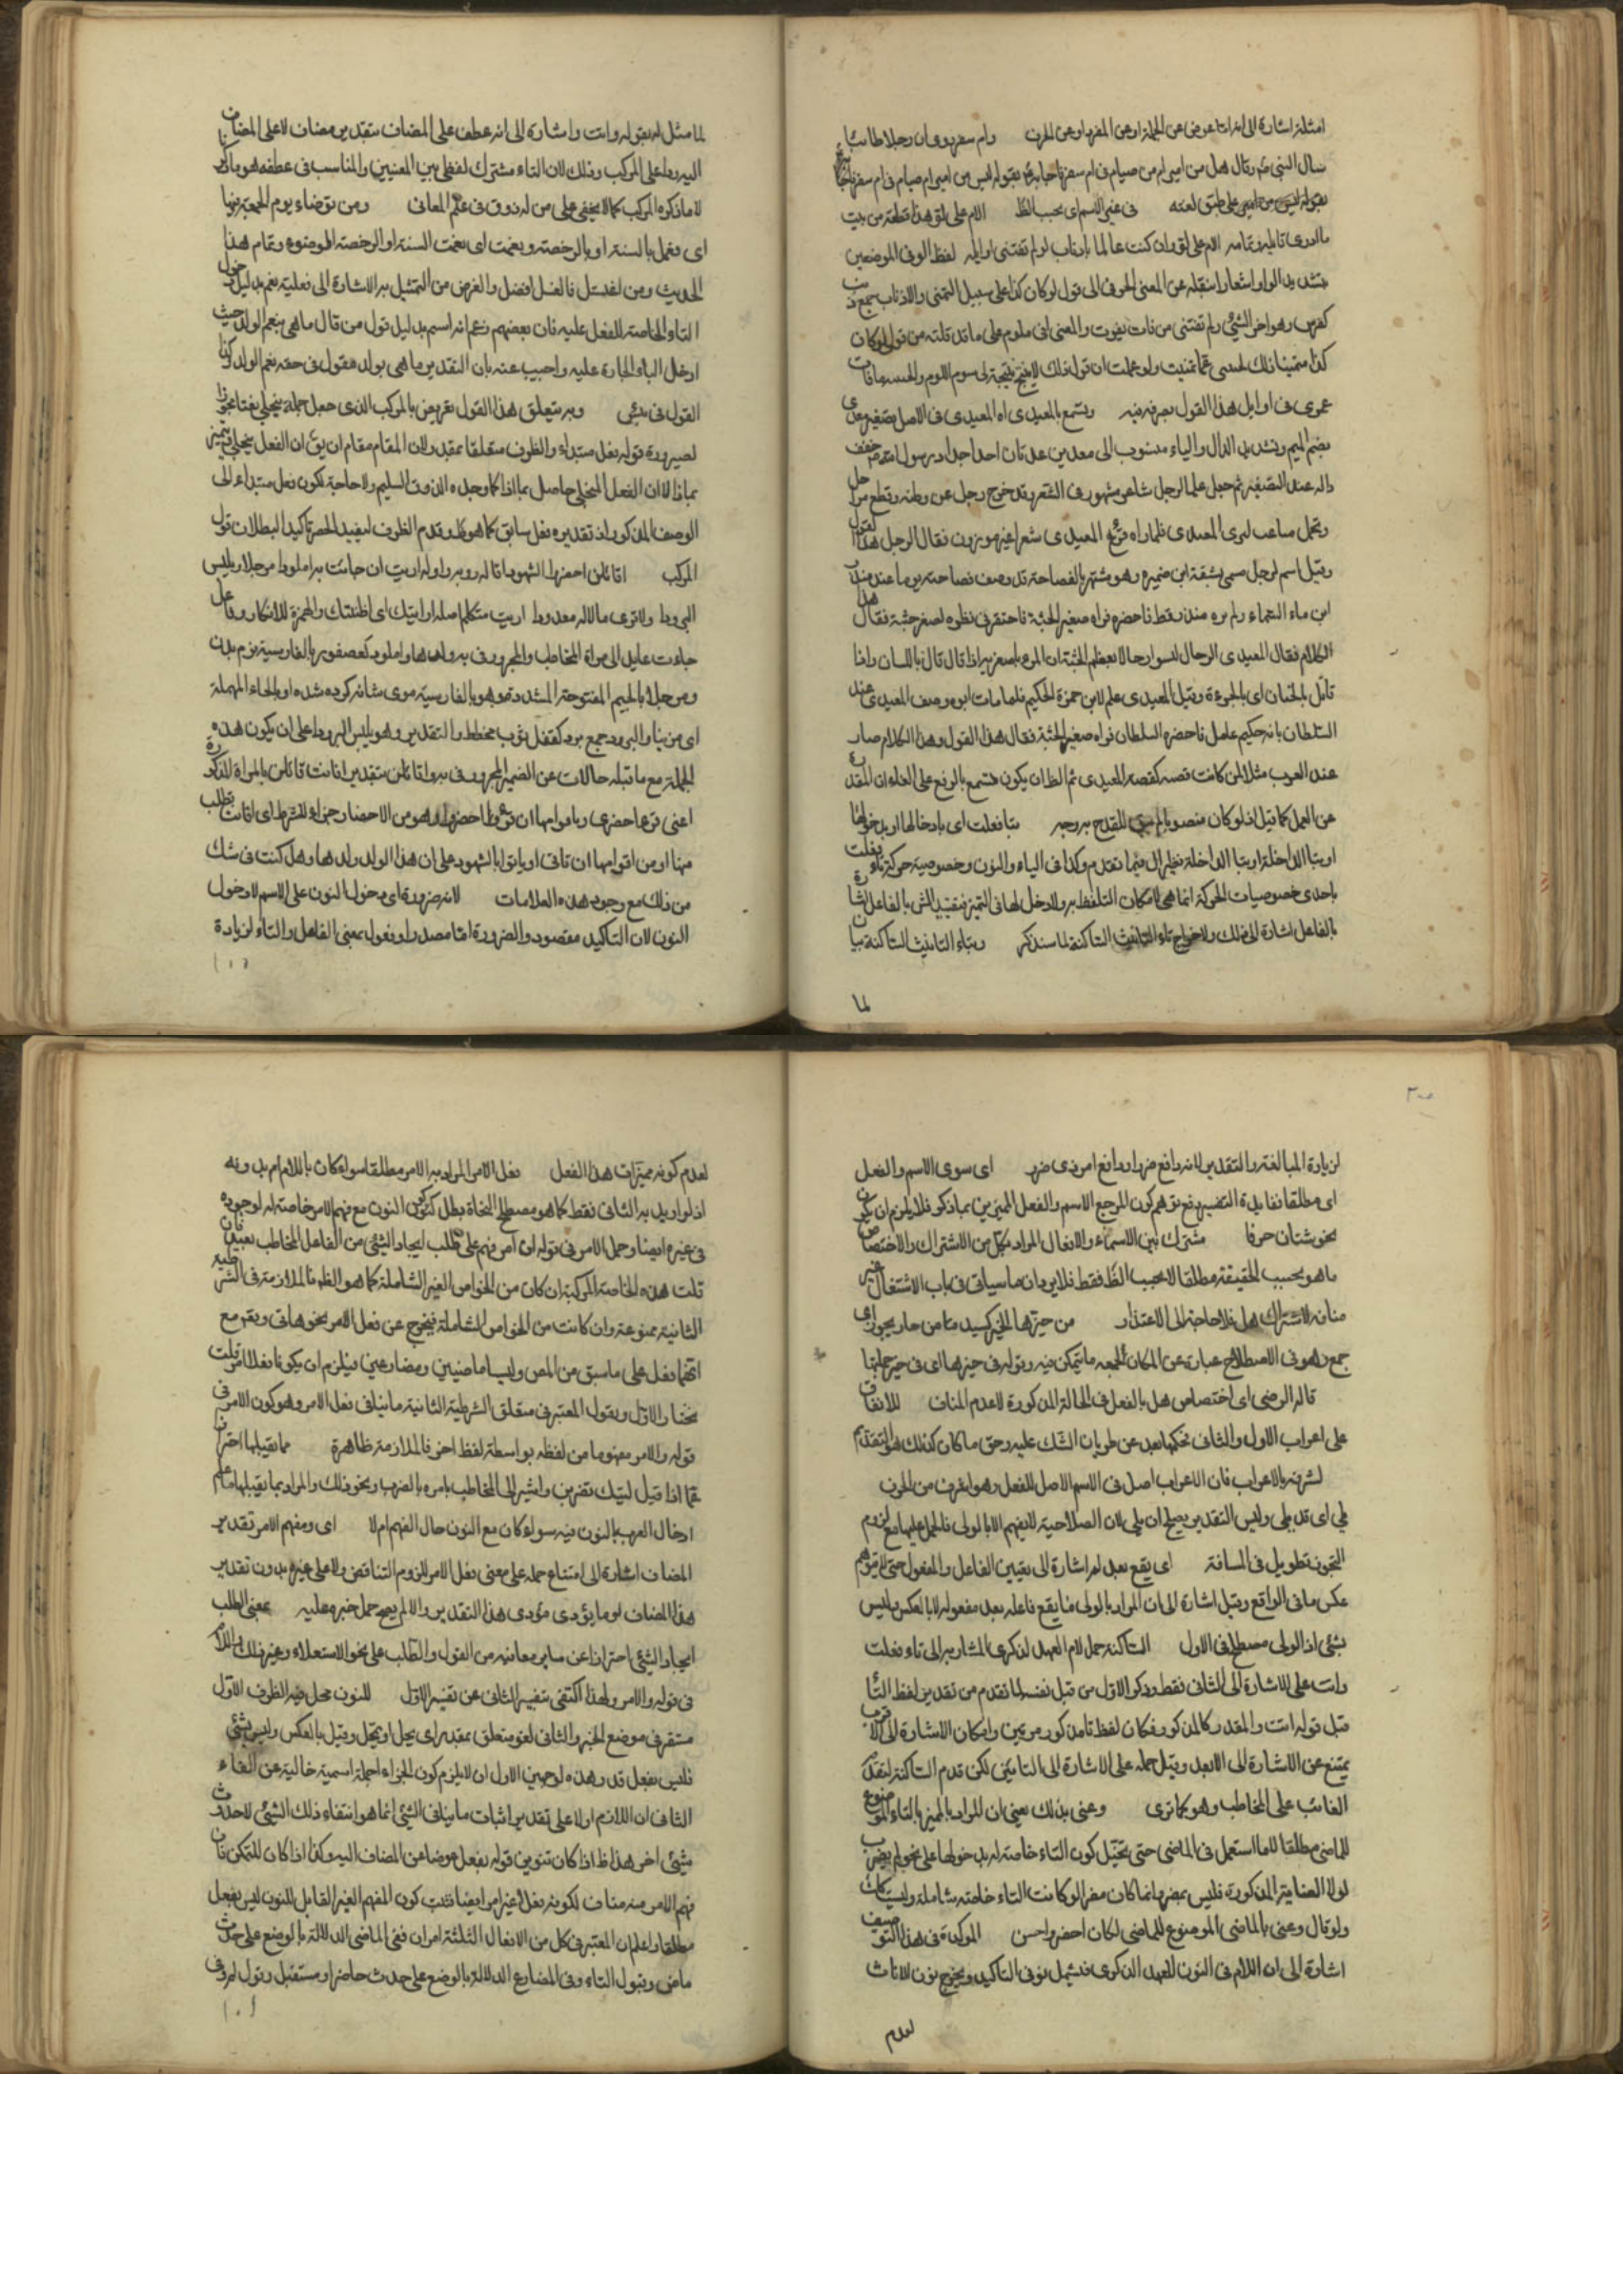 امثلة اشارة الى انها تاعوض عن الجملة او عن المفرد او عن الحرف وام سفر روى ان رجلا طائيا
سال النبى وقال هل من امبر امصيام فى ام سفر فاجابه بقوله ليس من امبر ام صيام فى ام سفر
بقوله ليس من امبر على طبق لغته فى غير الاسم اى بحسب الظ الام على لو هذا قطعة من بيت
ما ادرى قايله وتمامه الام على لو وان كنت عالما باذناب لو لم تفتنى اوايله لفظ لو فى الموضعين
بتشديد الواو اشعارا بنقله عن المعنى الحرفى الى قول لو كان كذا على سبيل التمنى والاذناب جمع ذنب
كفرس وهو اخر الشئ ولم تفتنى من فات يفوت والمعنى انى ملوم على ما قد قلته من قولى لو كان
كذا متمنيا ذلك ولو علمت ان قول ذلك لا ينتج نتيجة لى سوى اللوم والحسرة ما فات
عمرى فى اوايل هذا القول بصرفه فيه وتسمع بالمعيدى اه المعيدى فى الاصل تصغير معدى
بضم الميم وتشديد الدال والياء منسوب الى معد بن عدنان احد اجداد رسول الله خفف
داله عند التصغير ثم جعل علما لرجل شاعر مشهور فى الشعر وقد خرج رجل عن وطنه وقطع مراحل
وتحمل مصاعب لرؤى المعيدى فلما راه قرء المعيدى شعرا غير موزون فقال الرجل هذا القول
وقيل اسم لرجل صمى بشقة ابن ضميرة وهو مشتهر بالفصاحة قد وصف فصاحته يوما عند منذر
ابن ماء السماء ولم يره منذر قط فاحضره فراه صغير الجثة فاحتقر فى نظره لصغر جثته فقال هذا
الكلام فقال المعيدى الرجال ليسوا رجالا بعظم الجثة ان المرء باصغريه اذا قال قال باللسان واذا
قاتل بالجنان اى بالجرءة وقيل المعيدى علم لابن حمزة الحكيم فلما مات ابوه وصف المعيدى عند
السلطان بانه حكيم عامل فاحضره السلطان فراه صغير الجثة فقال هذا القول وهذا الكلام صار
عند العرب مثلا لمن كانت قصته كقصة المعيدى ثم الظ ان يكون فتسمع بالرفع على الغاء ان المقدرة
عن العمل كما قيل اذ لو كان منصوبا لم يبق للقدح به وجه بتا فعلت اى بادخالها او بدخولها
او بتا الداخلة او بتا الداخلة نظير الى فيما تقدم وكذا فى الياء والنون وخصوصية حركة تاء فعلت
باحدى خصوصيات الحركة انما هى لامكان التلفظ به ولا دخل لها فى التميز فتقييد الش بالفاعل اشارة
بالفاعل اشارة الى ذلك ولاخراج تاء التانيث الساكنة لما سنذكر وبتاء التانيث الساكنة بيان
لما
لما مثل له بقوله وانت واشارة الى انه عطف على المضاف بتقدير مضاف لا على المضاف
اليه ردا على المركب وذلك لان التاء مشترك لفظى بين المعنيين والمناسب فى عطفه هو ما ذكرنا
لا ما ذكره المركب كما لا يخفى على من له ذوق فى علم المعانى ومن توضاء يوم الجمعة فبها
اى فعمل بالسنة او بالرخصة ونعمت اى نعمت السنة او الرخصة الوضوء وتمام هذا
الحديث ومن اغتسل فالغسل افضل والغرض من التمثيل به الاشارة الى فعلية نعم بدليل دخول
التاء الخاصة للفعل عليه فان بعضهم زعم انه اسم بدليل قول من قال ما هى بنعم الولد حيث
ادخل الباء الجارة عليه واجيب عنه بان التقدير ما هى بولد مقول فى حقه نعم الولد وكذا
القول فى وبه يتعلق هذا القول تعريض بالمركب الذى جعل جملة ينجلى نعتا تجوزا
لصيرورة قوله فعل مبتداء والظرف متعلقا بمقدر ولان المقام مقام ان يق ان الفعل ينجلى يتميز
بماذا لا ان الفعل المنجلى حاصل بماذا كما وجده الذوق السليم ولا حاجة لكون فعل مبتداء الى
الوصف المذكور اذ تقديره فعل سابق كما هو الظ وقدم الظرف ليفيد الحصر تاكيدا لبطلان قول
المركب اقائلن احضروا الشهودا قاله روبه واوله اريت ان جائت به املودا مرجلا ويلبس
البرودا ولا ترى مالا له معدودا اريت متكلم اصله ارايتك اى اظننتك والهمزة للانكار وفاعل
جاءت عايد الى مراة المخاطب والمجرور فى به واملود كعصفور بالفارسية نرم بدن
ومرجلا بالجيم المفتوحة المشددة وهو بالفارسية موى شانه كرده شده او بالحاء المهملة
اى مزينا والبرود جمع برد كقفل ثوب مخطط والتقدير وهو يلبس البرودا على ان يكون هذه
الجملة مع ما قبله حالات عن الضمير المجرور فى به واقائلن بتقدير افانت قائلن بالمراة المذكورة
اعنى قوعا احضرى وياموامها ان احضروا وهو من الاحضار جزاء للشرط اى افانت تطلب
منها او من اقوامها ان تاتى او ياتوا بالشهود على ان هذا الولد ولدها وهل كنت فى شك
من ذلك مع وجود هذه العلامات لانه ضرورة اى دخول النون على الاسم لا دخول
النون لان التاكيد مقصود والضرورة اما مصدر او فعول بمعنى الفاعل والتاء لزيادة
لزيادة المبالغة والتقدير لانه دافع ضرار او دافع امر ذى ضر اى سوى الاسم والفعل
اى مطلقا نفايدة التفسير رفع توهم كون المرجع الاسم والفعل المميزين بما ذكر فلا يلزم ان يكون
نحو شتان حرفا مشترك بين الاسماء والافعال المراد بكل من الاشتراك والاختصاص
ما هو بحسب الحقيقة مطلقا لا بحسب الظ فقط فلا يرد ان ما سياتى فى باب الاشتغال غير
مناف لاشتراك هل فلا حاجة الى الاعتذار من حيزها الحيز كسيد ما من حاز يجوز اى
جمع وهو فى الاصطلاح عبارة عن المكان الجمعه ما يتمكن فيه وقوله فى حيزها اى فى حيز جملتها
قاله الرضى اى اختصاص هل بالفعل فى الحالة المذكورة لا عدم المناف للاتفاق
على اعراب الاول والثانى نحكمها بعد عن طريان الشك عليه وحق ما كان كذلك هو التقديم
لشرفه بالاعراب فان الاعراب اصل فى الاسم لا اصل للفعل وهو اشرف من الحرف
يلى اى قد يلى وليس التقدير يصلح ان يلى لان الصلاحية لا يفهم الا بالولى فالحمل عليها مع لزوم
التجوز تطويل فى المسافة اى يقع بعد لم اشارة الى تعيين الفاعل والمفعول حتى لا يتوهم
عكس ما فى الواقع وقيل اشارة الى ان المراد بالولى فما يقع فاعله بعد مفعوله لا بالعكس وليس
بشئ اذ الولى مصطلح فى الاول الساكنة حمل لام العهد الذكرى المشار به الى تاء فعلت
واتت على الاشارة الى الثانى فقط وذكر الاول من قبل نفسه لما تقدم من تقدير لفظ التا
قبل قوله اتت والمقدر كالمذكور فكان لفظ تا مذكور مرتين وامكان الاشارة الى الاقرب
يمتنع عن الاشارة الى الابعد وقيل حمله على الاشارة الى التائين لكن قدم الساكنة لتقدم
الغائب على المخاطب وهو كما ترى وعنى بذلك يعنى ان المراد بالمميز بالتاء الموضوع
للماضى مطلقا لا ما استعمل فى الماضى حتى يختل كون التاء خاصة له بدخولها على نحو لم يضرب
لولا العناية المذكورة فليس بمضر انما كان مضرا لو كانت التاء خاصته شاملة وليست كذلك
ولو قال وعنى بالماضى الموضوع للماضى لكان احضر واحسن المؤكدة فى هذا التوصيف
اشارة الى ان اللام فى النون للعهد الذكرى فيشمل نونى التاكيد ويخرج نون الاناث
لعدم
لعدم كونه مميزات هذا الفعل فعل الامر المراد به الامر مطلقا سواء كان باللام ام بدونه
اذ لو اريد به الثانى فقط كما هو مصطلح النحاة بطل كون النون مع فهم الامر خاصة له لوجوده
فى غيره ايضا وحمل الامر فى قوله ان امر فهم على طلب ايجاد الشئ من الفاعل المخاطب بعينه فان
قلت هذه الخاصة المركبة ان كان من الخواص الغير الشاملة كما هو الظ فالملازمة فى الشرطية
الثانية ممنوعة وان كانت من الخواص الشاملة فيخرج عن فعل الامر نحو هاتى وتعم مع
انهما فعل على ما سبق من المص وليسا ماضيين ومضارعين فيلزم ان يكونا فعلا امر قلت
نختار الاول ونقول المعتبر فى متعلق الشرطية الثانية ما ينافى فعل الامر وهو كون الامر فى
قوله والامر مفهوما من لفظه بواسطة لفظ اخر فالملازمة ظاهرة مما يقبلها احتراز
عما اذا قيل ليتك تضربن واشير الى المخاطب بامره بالضرب ونحو ذلك والمراد بما يقبلها ما علم
ادخال العرب النون فيه سواء كان مع النون حال الفهم ام لا اى ومفهم الامر تقدير
المضاف اشارة الى امتناع حمله على معنى فعل الامر للزوم التناقض ولا على غيره بدون تقدير
هذا المضاف لو ما يؤدى مؤدى هذا التقدير والا لم يصح حمل خبره عليه بمعنى الطلب
ايجاد الشئ احترازا عن ساير معانيه من القول والطلب على نحو الاستعلاء وغير ذلك واللام
فى قوله والامر ولهذا اكتفى بتفسير الثانى عن تفسير الاول للنون محل فيه الظرف الاول
مستقر فى موضع الخبر والثانى لغو متعلق بمقدر اى يحل او يحل وقيل بالعكس وليس بشئ
فليس بفعل قد وهذه لوجهين الاول ان لا يلزم كون الجزاء جملة اسمية خالية عن الفاء
الثانى ان اللازم اولا على تقدير اثبات ما ينافى الشئ انما هو انتفاء ذلك الشئ لا حدوث
شئ اخر هذا ظ اذا كان تنوين قوله بفعل عوضا عن المضاف اليه وكذا اذا كان للتمكن فان
فهم الامر منه مناف لكونه فعلا غير امر ايضا فثبت كون المفهم الغير القابل للنون ليس بفعل
مطلقا واعلم ان المعتبر فى كل من الافعال الثلثة امران ففى الماضى الدلالة بالوضع على حدث
ماض وقبول التاء وفى المضارع الدلالة بالوضع على حدث حاضر او مستقبل وقبول لم وفى